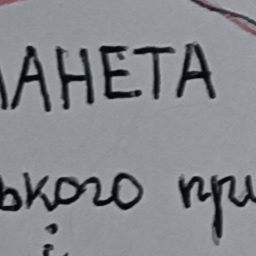 ЛАНЕТА
ького при
і